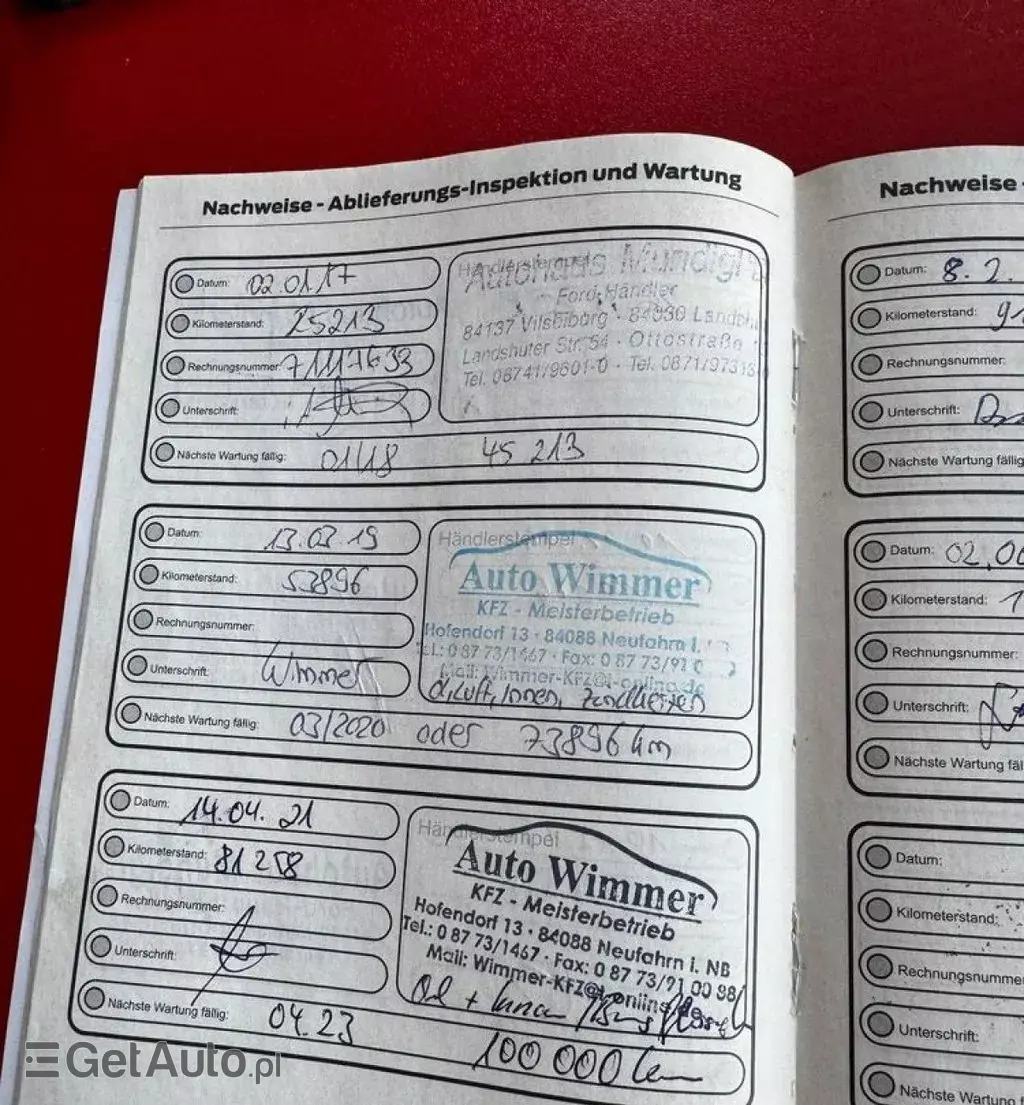 Nachweise - Ablieferungs-Inspektion und Wartung
Datum: 02.01.17
Kilometerstand: 25213
Rechnungsnummer: 7117633
Unterschrift:
Nächste Wartung fällig: 01/18 45 213
Händlerstempel
Autohaus
Ford-Händler
84137 Vilsbiburg · 84030
Landshuter Str. 54 · Ottostraße
Tel. 08741/9601-0 · Tel. 0871/97318
Datum: 13.03.19
Kilometerstand: 53896
Rechnungsnummer:
Unterschrift: Wimmer
Nächste Wartung fällig: 03/2020 oder 73896 km
Händlerstempel
Auto Wimmer
KFZ - Meisterbetrieb
Hofendorf 13 · 84088 Neufahrn i.
Tel.: 0 87 73/1467 · Fax: 0 87 73/91 0
Mail: Wimmer-KFZ@t-online.de
Öl, Luft, Innen, Zündkerzen
Datum: 14.04.21
Kilometerstand: 81 258
Rechnungsnummer:
Unterschrift:
Nächste Wartung fällig: 04.23 100 000 km
Händlerstempel
Auto Wimmer
KFZ - Meisterbetrieb
Hofendorf 13 · 84088 Neufahrn i. NB
Tel.: 0 87 73/1467 · Fax: 0 87 73/91 00 98
Mail: Wimmer-KFZ@t-online.de
Öl +
Nachweise -
Datum: 8.2.
Kilometerstand: 91
Rechnungsnummer:
Unterschrift:
Nächste Wartung fällig
Datum: 02.0
Kilometerstand: 1
Rechnungsnummer:
Unterschrift:
Nächste Wartung fäl
Datum:
Kilometerstand:
Rechnungsnumme
Unterschrift:
Nächste Wartung
GetAuto.pl